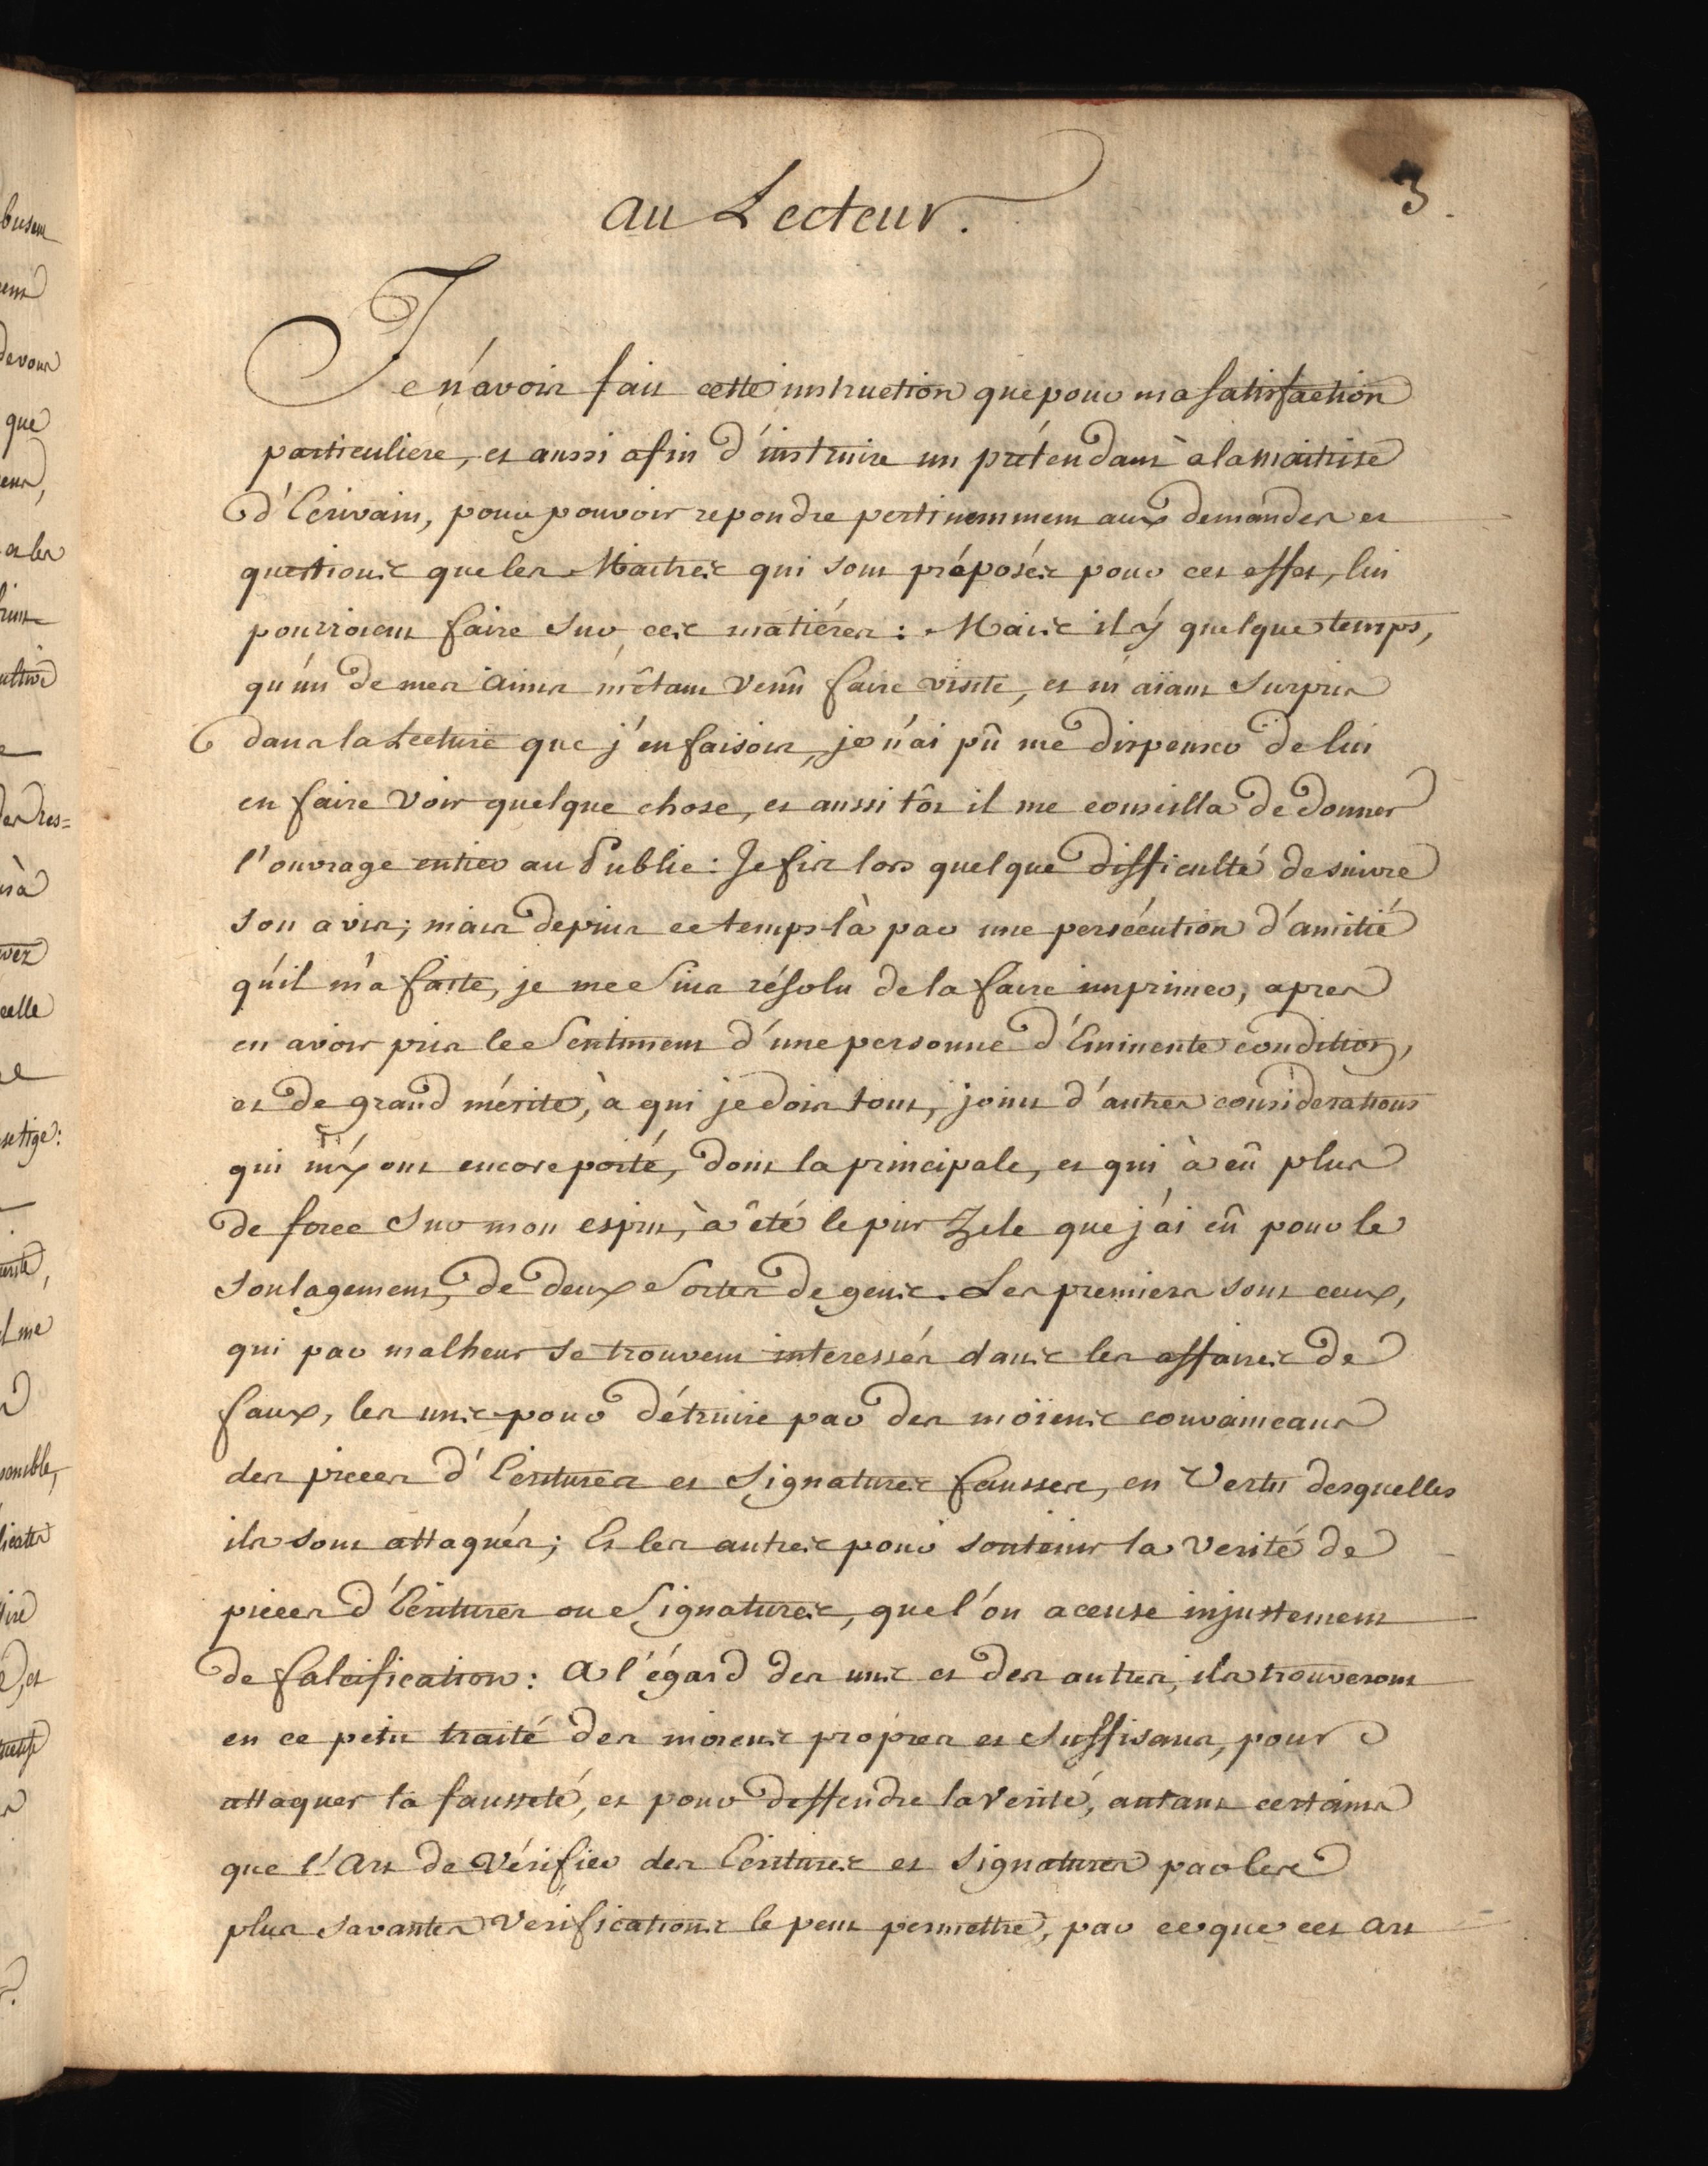 3.
au Lecteur.
Je n'avois fait cette instruction que pour ma satisfaction
particuliere, et aussi afin d'instruire un prétendant à la maitrise
d'Ecrivain, pour pouvoir repondre pertinemment aux demandes et
questions que les Maitres qui sont préposés pour cet effet, lui
pourroient faire sur ces matiéres : Mais il y quelque temps,
qu'un de mes amis m'étant venû faire visite, et m'aïant surpris
dans la Lecture que j'en faisois, je n'ai pû me dispenser de lui
en faire voir quelque chose, et aussi tôt il me conseilla de donner
l'ouvrage entier au Public : Je fis lors quelque difficulté de suivre
son avis ; mais depuis ce temps-là par une persécution d'amitié
qu'il m'a faite, je me suis résolu de la faire imprimer, apres
en avoir pris le Sentiment d'une personne d'Eminente condition,
et de grand mérite, à qui je dois tout, joint d'autres considerations
qui m'y ont encore porté, dont la principale, et qui à eû plus
de force sur mon esprit, à été le pur Zele que j'ai eû pour le
soulagement, de deux Sortes de gens. Les premiers sont ceux,
qui par malheur se trouvent interessés dans les affaires de
faux, les uns pour détruire par des moïens convaincans
des pieces d'Ecritures et Signatures fausses, en Vertu desquelles
ils sont attaqués ; Et les autres pour soutenir la verité de
pieces d'Ecritures ou Signatures, que l'on accuse injustement
de falcification : A l'égard des uns et des autres, ils trouveront
en ce petit traité des moiens propres et Suffisans, pour
attaquer la fausseté, et pour deffendre la Verité, autant certains
que l'Art de Vérifier des Ecritures et signatures par les
plus savantes Verifications le peut permettre, par ce que cet art